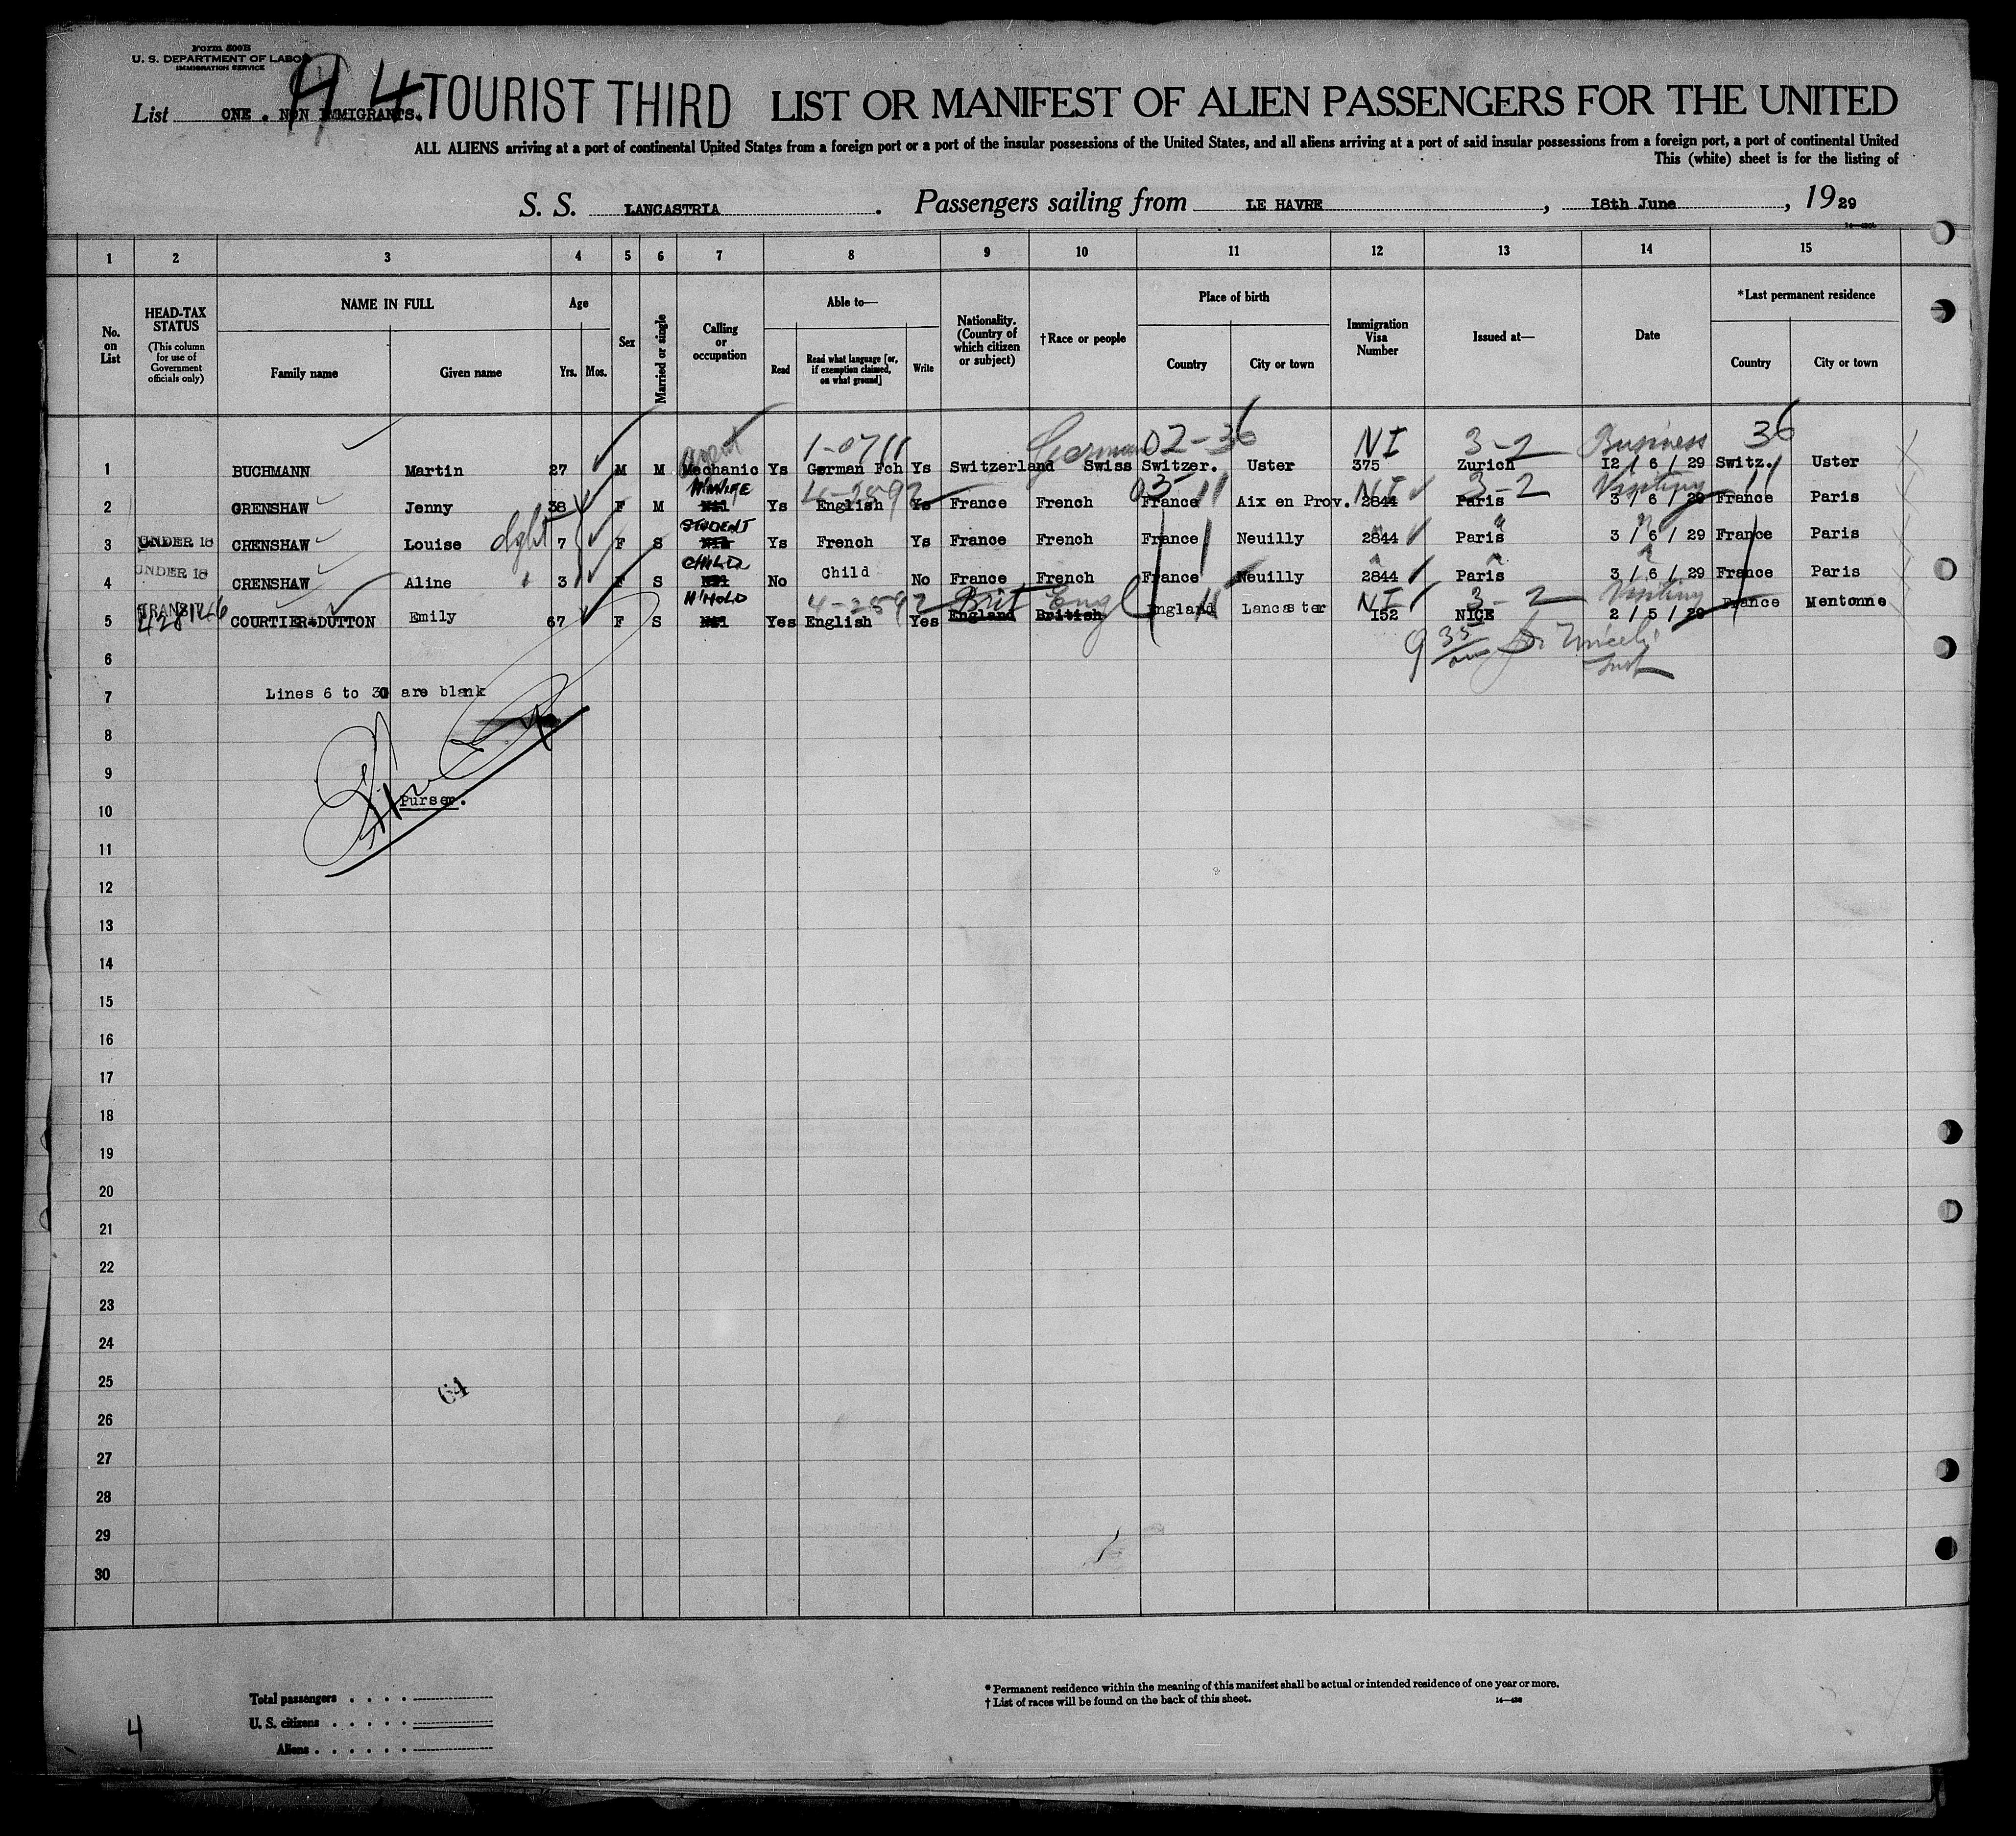 Form 500B
U. S. DEPARTMENT OF LABOR
IMMIGRATION SERVICE
44
List ONE . NON IMMIGRANTS. TOURIST THIRD LIST OR MANIFEST OF ALIEN PASSENGERS FOR THE UNITED
ALL ALIENS arriving at a port of continental United States from a foreign port or a port of the insular possessions of the United States, and all aliens arriving at a port of said insular possessions from a foreign port, a port of continental United
This (white) sheet is for the listing of
S. S. LANCASTRIA . Passengers sailing from LE HAVRE , 18th June , 1929
1 2 3 4 5 6 7 8 9 10 11 12 13 14 15
No. on List
HEAD-TAX STATUS (This column for use of Government officials only)
NAME IN FULL
Family name Given name
Age
Yrs. Mos.
Sex
Married or single
Calling or occupation
Able to—
Read
Read what language [or, if exemption claimed, on what ground]
Write
Nationality. (Country of which citizen or subject)
†Race or people
Place of birth
Country City or town
Immigration Visa Number
Issued at—
Date
*Last permanent residence
Country City or town
agent 1-0711 German 02-36 NI 3-2 Business 36
1 BUCHMANN Martin 27 M M Mechanic Ys German Fch Ys Switzerland Swiss Switzer. Uster 375 Zurich I2 / 6 / 29 Switz. Uster
H'WIFE 4-2592 03 11 NI 3-2 Visiting 11
2 CRENSHAW Jenny 38 F M Nil Ys English Ys France French France Aix en Prov. 2844 Paris 3 / 6 / 29 France Paris
STUDENT
3 UNDER 16 CRENSHAW Louise dght 7 F S Nil Ys French Ys France French France Neuilly 2844 Paris 3 / 6 / 29 France Paris
CHILD
4 UNDER 16 CRENSHAW Aline " 3 F S Nil No Child No France French France Neuilly 2844 Paris 3 / 6 / 29 France Paris
TRANSIT H'HOLD 4-2592 Brit Eng 11 NI 3-2 Visiting
5 COURTIER-DUTTON Emily 67 F S Nil Yes English Yes England British England Lancaster I52 NICE 2 / 5 / 29 France Mentonne
9 35
6
7 Lines 6 to 30 are blank
8
9
10 Purser.
11
12
13
14
15
16
17
18
19
20
21
22
23
24
25 64
26
27
28
29
30
Total passengers . . . .
U. S. citizens . . . . .
Aliens . . . . . .
4
* Permanent residence within the meaning of this manifest shall be actual or intended residence of one year or more.
† List of races will be found on the back of this sheet.